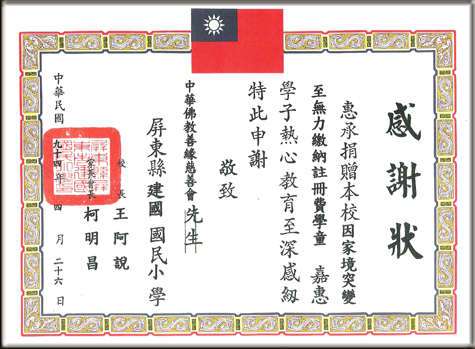 感謝狀
惠承捐贈本校因家境突變
至無力繳納註冊費學童 嘉惠
學子熱心教育至深感紉
特此申謝
敬致
中華佛教善緣慈善會 先生
屏東縣建國國民小學
校長 王阿說
家長會長 柯明昌
中華民國九十四年 四月二十六日